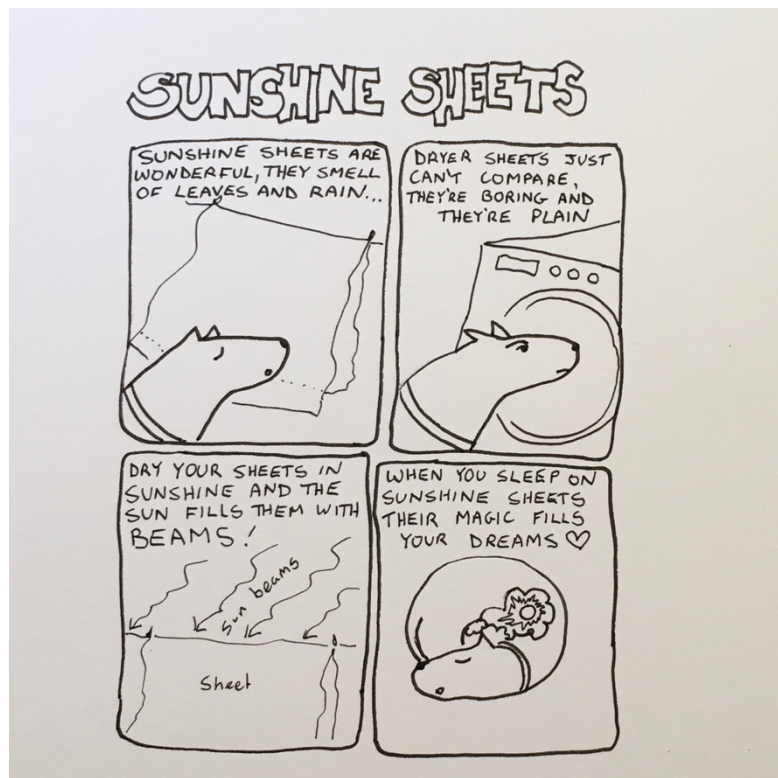 SUNSHINE SHEETS
SUNSHINE SHEETS ARE
WONDERFUL, THEY SMELL
OF LEAVES AND RAIN...
DRYER SHEETS JUST
CAN'T COMPARE,
THEY'RE BORING AND
THEY'RE PLAIN
DRY YOUR SHEETS IN
SUNSHINE AND THE
SUN FILLS THEM WITH
BEAMS!
Sun beams
Sheet
WHEN YOU SLEEP ON
SUNSHINE SHEETS
THEIR MAGIC FILLS
YOUR DREAMS ♡